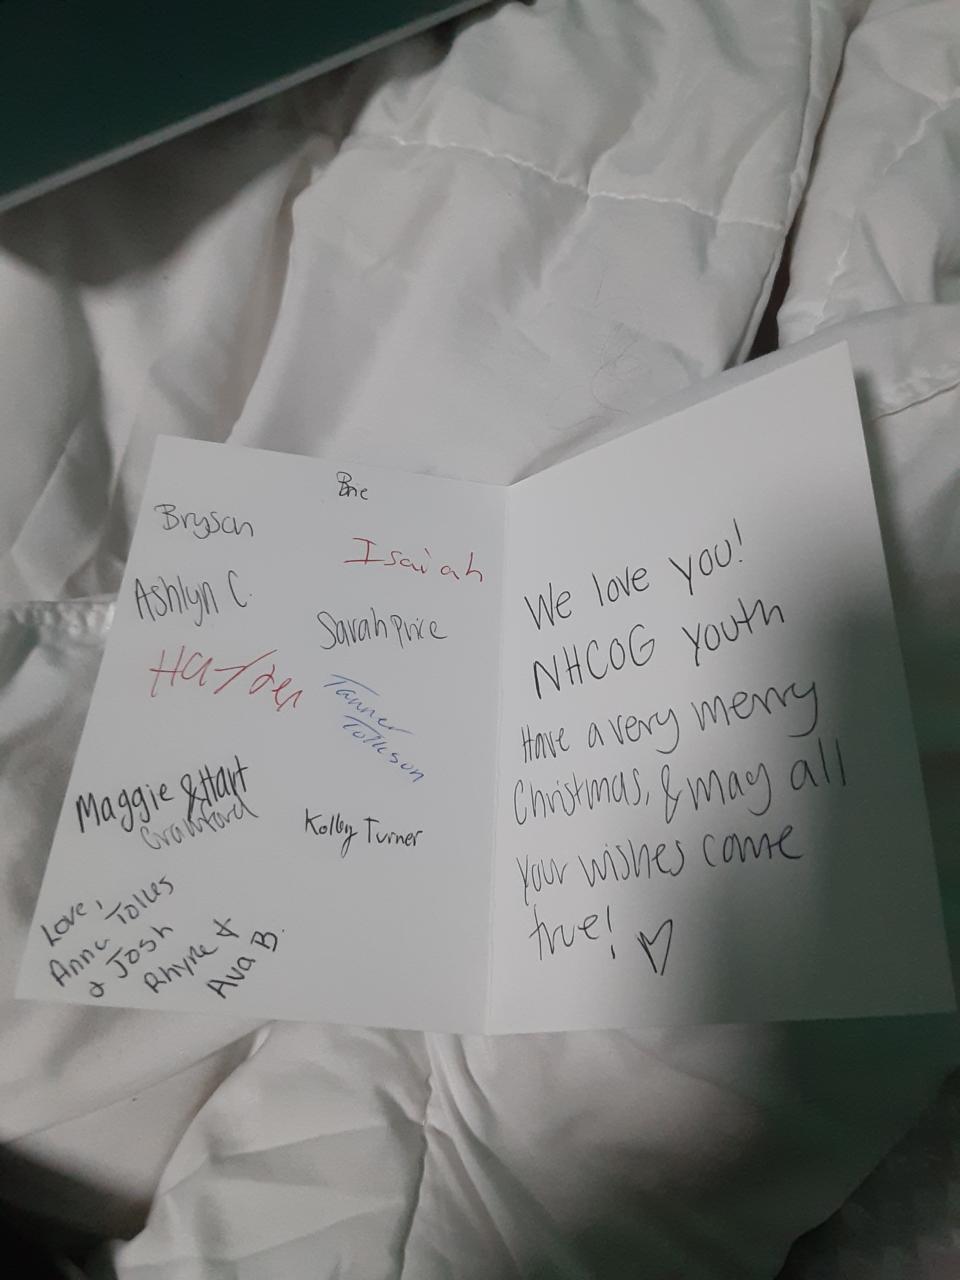 Brie
Bryson
Isaiah
Ashlyn C.
Sarah Price
Hayden
Tanner
Tolleson
Maggie & Hart
Crawford
Kolby Turner
Love,
Anna Tolles
& Josh
Rhyne &
Ava B.
We love you!
NHCOG Youth
Have a very merry
Christmas, & may all
your wishes come
true! ♡